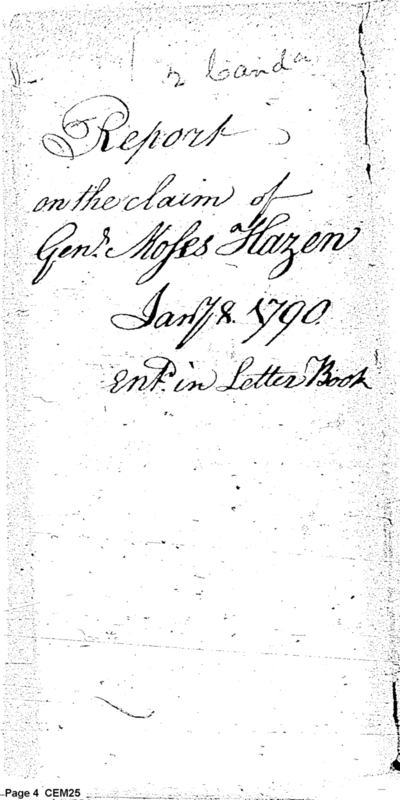 Report
on the claim of
Genl. Moses Hazen
Jany 8. 1790.
Entd. in Letter Book
Page 4 CEM25